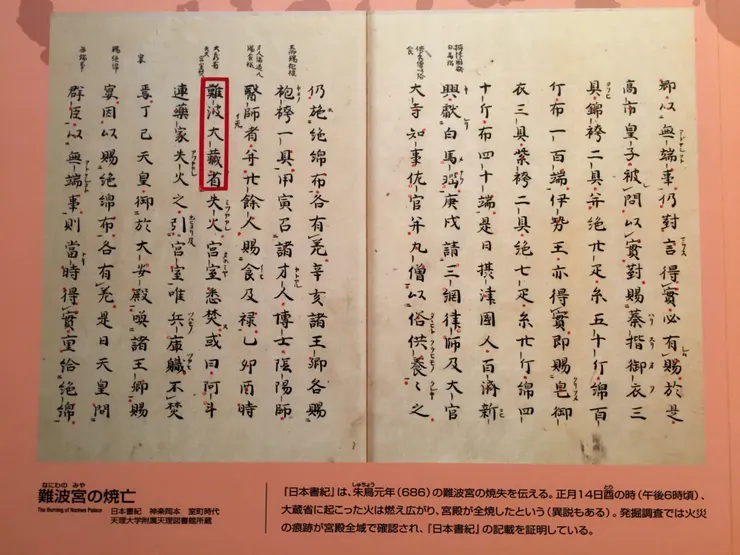 卿以無端事仍對言得實必有賜於是
高市皇子被問以實對賜蓁揩御衣三
具錦袴二具并絁廿疋糸五十斤綿百
斤布一百端伊勢王亦得實即賜皂御
衣三具紫袴二具絁七疋糸廿斤綿四
十斤布四十端是日摂津國人百濟新
興献白馬瑙庚戌請三綱律師及大官
大寺知事佐官并九僧以俗供養々之
仍施絁綿布各有差辛亥諸王卿各賜
袍袴一具甲寅召諸才人博士陰陽師
醫師者并廿餘人賜食及禄乙卯酉時
難波大蔵省失火宮室悉焚或曰阿斗
連藥家失火之引宮室唯兵庫職不焚
焉丁巳天皇御於大安殿喚諸王卿賜
宴因以賜絁綿布各有差是日天皇問
群臣以無端事則當時得實重給絁綿
なにわの みや
難波宮の焼亡
The Burning of Naniwa Palace
日本書紀 神楽岡本 室町時代
天理大学附属天理図書館所蔵
しゅちょう
『日本書紀』は、朱鳥元年(686)の難波宮の焼失を伝える。正月14日酉の時(午後6時頃)、
大蔵省に起こった火は燃え広がり、宮殿が全焼したという(異説もある)。発掘調査では火災
の痕跡が宮殿全域で確認され、『日本書紀』の記載を証明している。